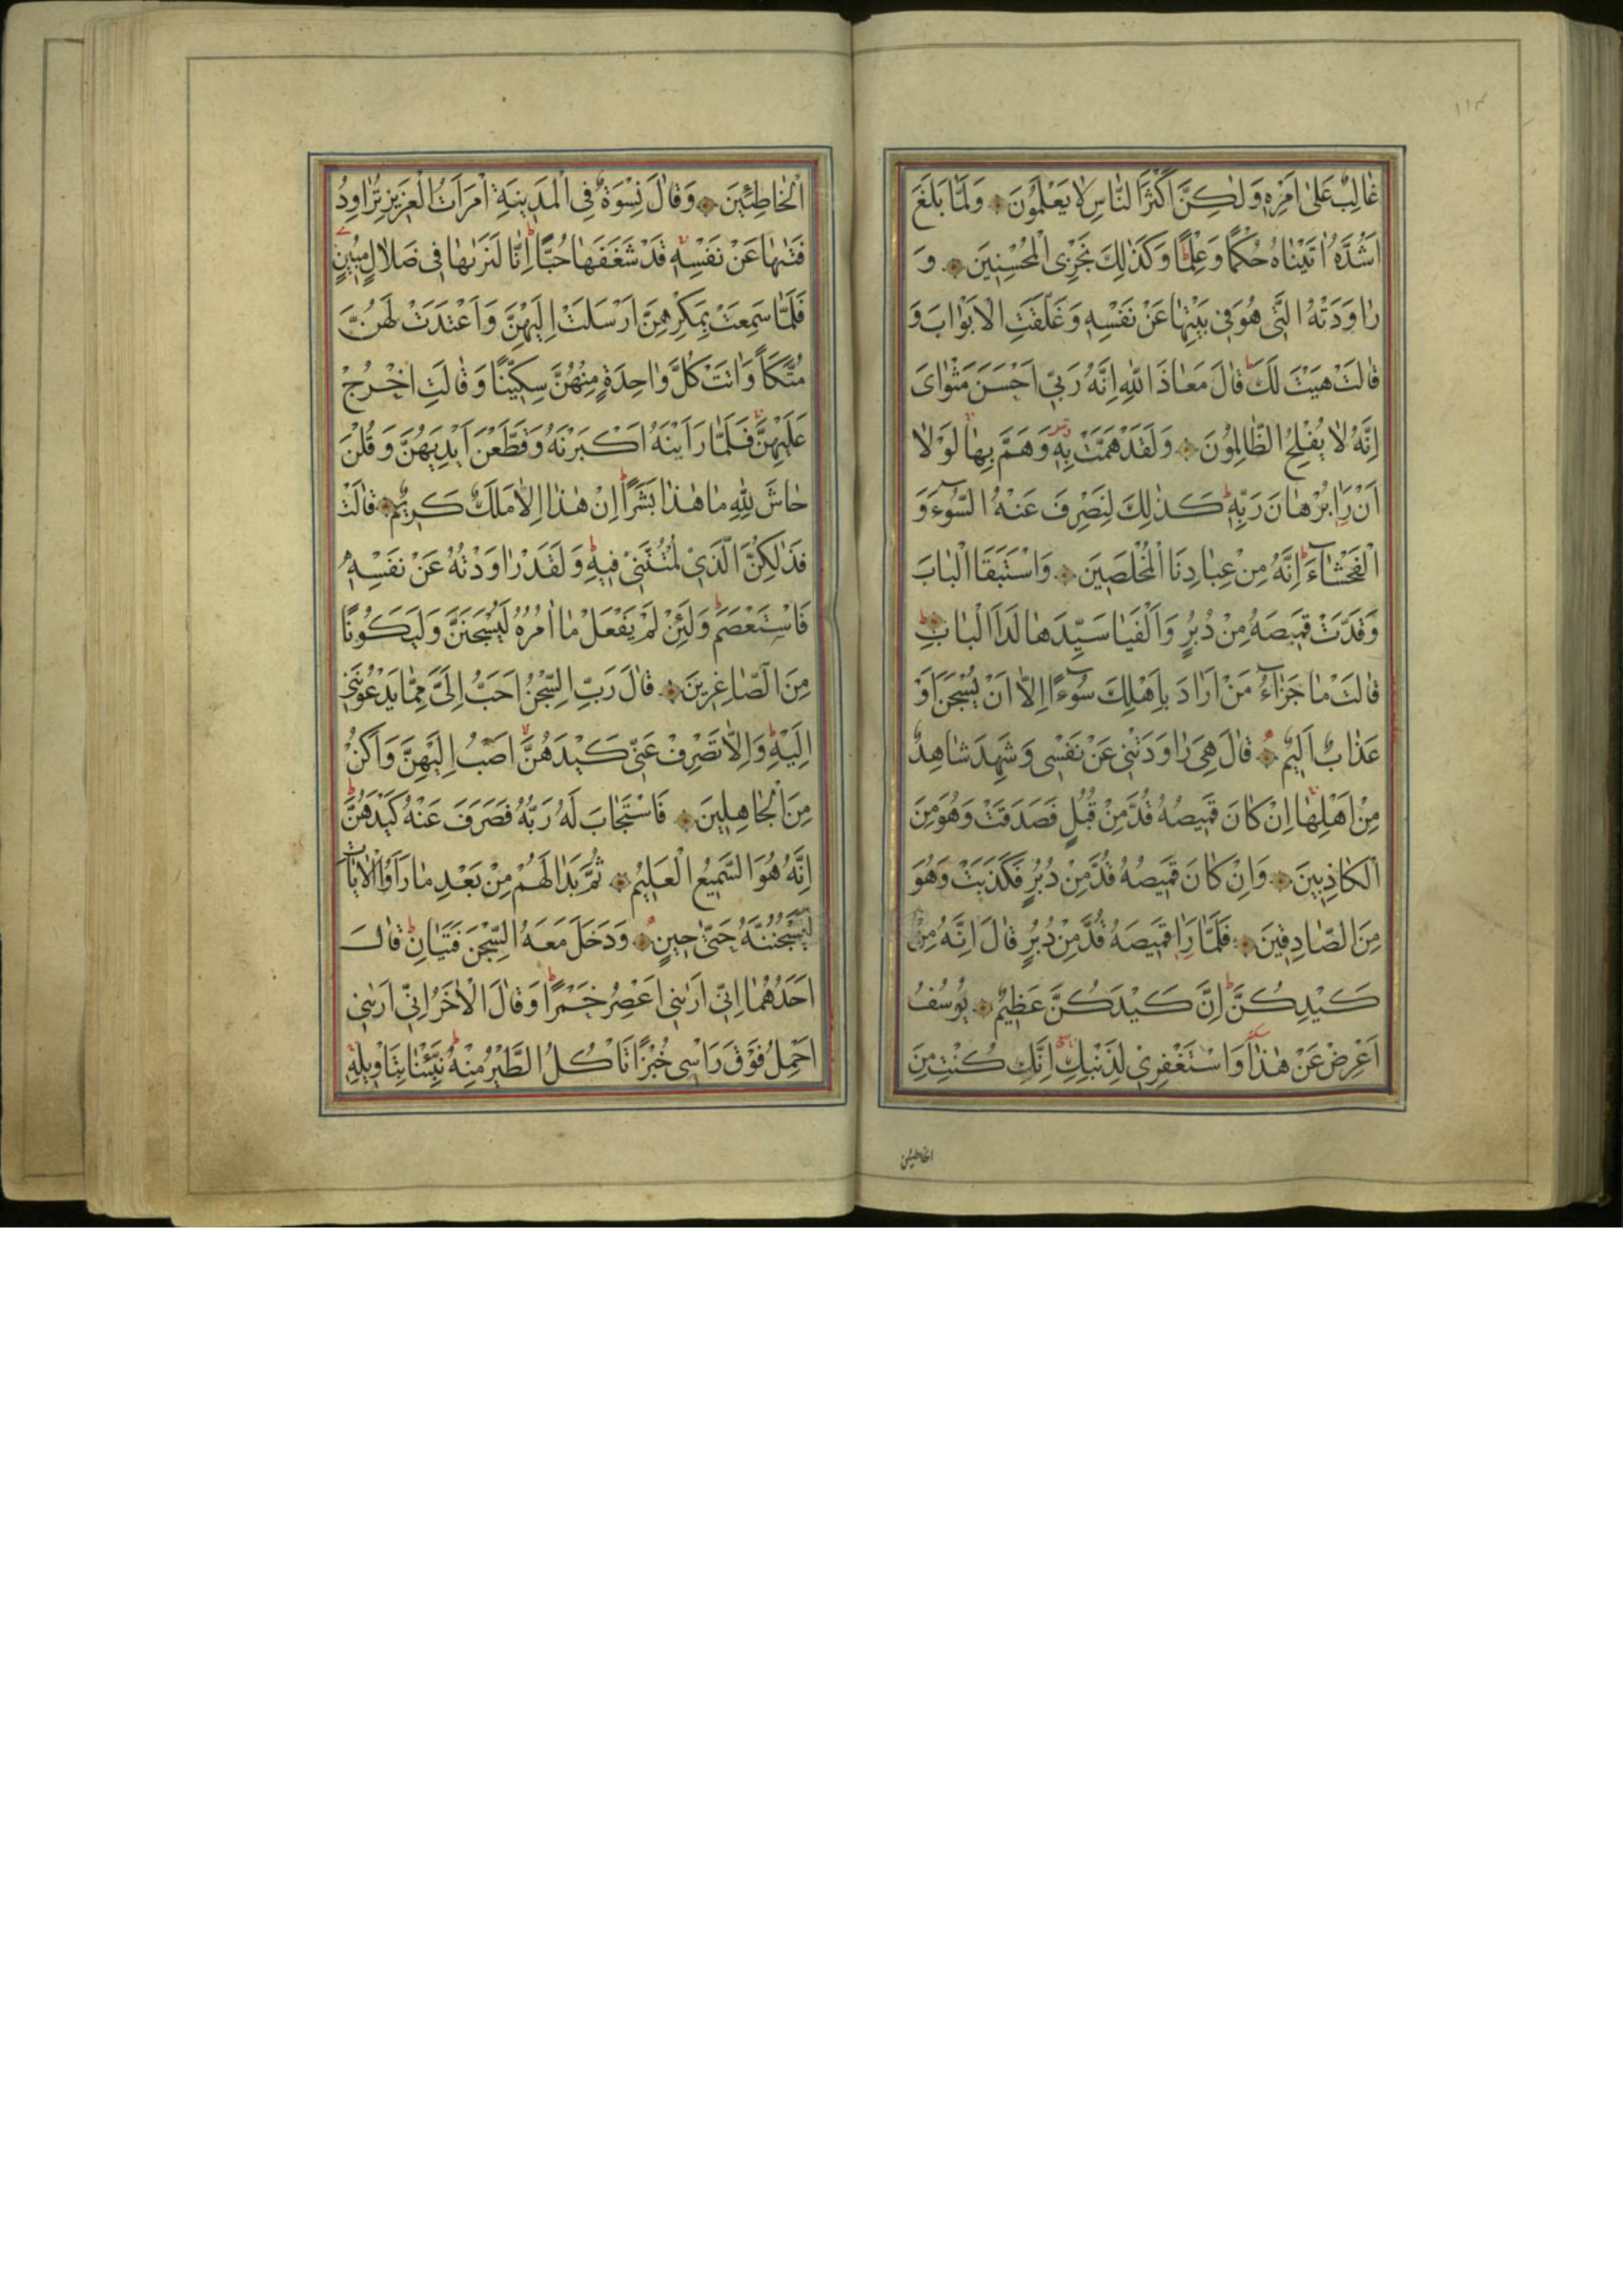 ١١٣
غَالِبٌ عَلٰى اَمْرِهٖ وَلٰكِنَّ اَكْثَرَ النَّاسِ لَا يَعْلَمُونَ وَلَمَّا بَلَغَ
اَشُدَّهُ اٰتَيْنَاهُ حُكْمًا وَعِلْمًا وَكَذٰلِكَ نَجْزِى الْمُحْسِنِينَ وَ
رَاوَدَتْهُ الَّتِى هُوَ فِى بَيْتِهَا عَنْ نَفْسِهٖ وَغَلَّقَتِ الْاَبْوَابَ وَ
قَالَتْ هَيْتَ لَكَ قَالَ مَعَاذَ اللّٰهِ اِنَّهُ رَبِّى اَحْسَنَ مَثْوَاىَ
اِنَّهُ لَا يُفْلِحُ الظَّالِمُونَ وَلَقَدْ هَمَّتْ بِهٖ وَهَمَّ بِهَا لَوْلَا
اَنْ رَاٰ بُرْهَانَ رَبِّهٖ كَذٰلِكَ لِنَصْرِفَ عَنْهُ السُّوٓءَ وَ
الْفَحْشَآءَ اِنَّهُ مِنْ عِبَادِنَا الْمُخْلَصِينَ وَاسْتَبَقَا الْبَابَ
وَقَدَّتْ قَمِيصَهُ مِنْ دُبُرٍ وَاَلْفَيَا سَيِّدَهَا لَدَا الْبَابِ
قَالَتْ مَا جَزَآءُ مَنْ اَرَادَ بِاَهْلِكَ سُوٓءًا اِلَّا اَنْ يُسْجَنَ اَوْ
عَذَابٌ اَلِيمٌ قَالَ هِىَ رَاوَدَتْنِى عَنْ نَفْسِى وَشَهِدَ شَاهِدٌ
مِنْ اَهْلِهَا اِنْ كَانَ قَمِيصُهُ قُدَّ مِنْ قُبُلٍ فَصَدَقَتْ وَهُوَ مِنَ
الْكَاذِبِينَ وَاِنْ كَانَ قَمِيصُهُ قُدَّ مِنْ دُبُرٍ فَكَذَبَتْ وَهُوَ
مِنَ الصَّادِقِينَ فَلَمَّا رَاٰ قَمِيصَهُ قُدَّ مِنْ دُبُرٍ قَالَ اِنَّهُ مِنْ
كَيْدِكُنَّ اِنَّ كَيْدَكُنَّ عَظِيمٌ يُوسُفُ
اَعْرِضْ عَنْ هٰذَا وَاسْتَغْفِرِى لِذَنْبِكِ اِنَّكِ كُنْتِ مِنَ
الخاطئين
الْخَاطِئِينَ وَقَالَ نِسْوَةٌ فِى الْمَدِينَةِ امْرَاَتُ الْعَزِيزِ تُرَاوِدُ
فَتٰيهَا عَنْ نَفْسِهٖ قَدْ شَغَفَهَا حُبًّا اِنَّا لَنَرٰيهَا فِى ضَلَالٍ مُبِينٍ
فَلَمَّا سَمِعَتْ بِمَكْرِهِنَّ اَرْسَلَتْ اِلَيْهِنَّ وَاَعْتَدَتْ لَهُنَّ
مُتَّكَأً وَاٰتَتْ كُلَّ وَاحِدَةٍ مِنْهُنَّ سِكِّينًا وَقَالَتِ اخْرُجْ
عَلَيْهِنَّ فَلَمَّا رَاَيْنَهُ اَكْبَرْنَهُ وَقَطَّعْنَ اَيْدِيَهُنَّ وَقُلْنَ
حَاشَ لِلّٰهِ مَا هٰذَا بَشَرًا اِنْ هٰذَا اِلَّا مَلَكٌ كَرِيمٌ قَالَتْ
فَذٰلِكُنَّ الَّذِى لُمْتُنَّنِى فِيهِ وَلَقَدْ رَاوَدْتُهُ عَنْ نَفْسِهٖ
فَاسْتَعْصَمَ وَلَئِنْ لَمْ يَفْعَلْ مَا اٰمُرُهُ لَيُسْجَنَنَّ وَلَيَكُونًا
مِنَ الصَّاغِرِينَ قَالَ رَبِّ السِّجْنُ اَحَبُّ اِلَىَّ مِمَّا يَدْعُونَنِى
اِلَيْهِ وَاِلَّا تَصْرِفْ عَنِّى كَيْدَهُنَّ اَصْبُ اِلَيْهِنَّ وَاَكُنْ
مِنَ الْجَاهِلِينَ فَاسْتَجَابَ لَهُ رَبُّهُ فَصَرَفَ عَنْهُ كَيْدَهُنَّ
اِنَّهُ هُوَ السَّمِيعُ الْعَلِيمُ ثُمَّ بَدَا لَهُمْ مِنْ بَعْدِ مَا رَاَوُا الْاٰيَاتِ
لَيَسْجُنُنَّهُ حَتّٰى حِينٍ وَدَخَلَ مَعَهُ السِّجْنَ فَتَيَانِ قَالَ
اَحَدُهُمَا اِنِّى اَرٰينِى اَعْصِرُ خَمْرًا وَقَالَ الْاٰخَرُ اِنِّى اَرٰينِى
اَحْمِلُ فَوْقَ رَاْسِى خُبْزًا تَاْكُلُ الطَّيْرُ مِنْهُ نَبِّئْنَا بِتَاْوِيلِهٖ